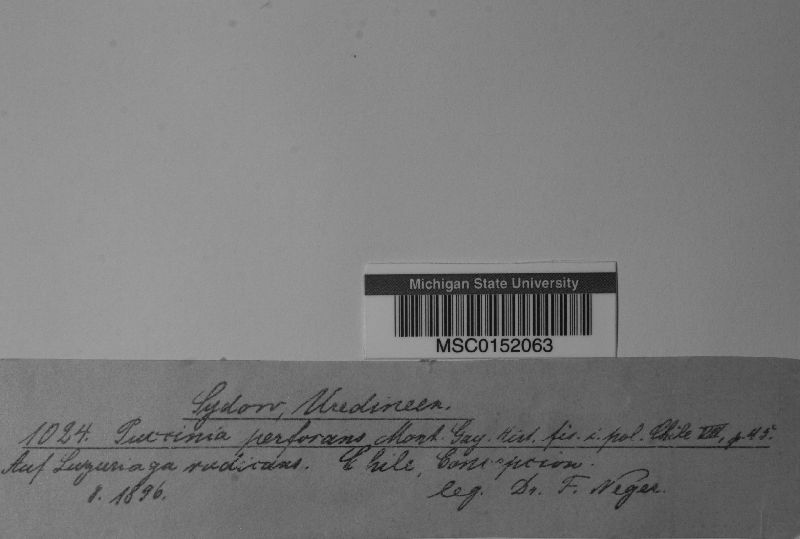 Michigan State University
MSC0152063
Sydow, Uredineen.
1024. Puccinia perforans Mont. Gay. Hist. fis. i. pol. Chile VIII, p. 45.
Auf Luzuriaga radicans. Chile, Concepcion.
8. 1896. leg. Dr. F. Neger.